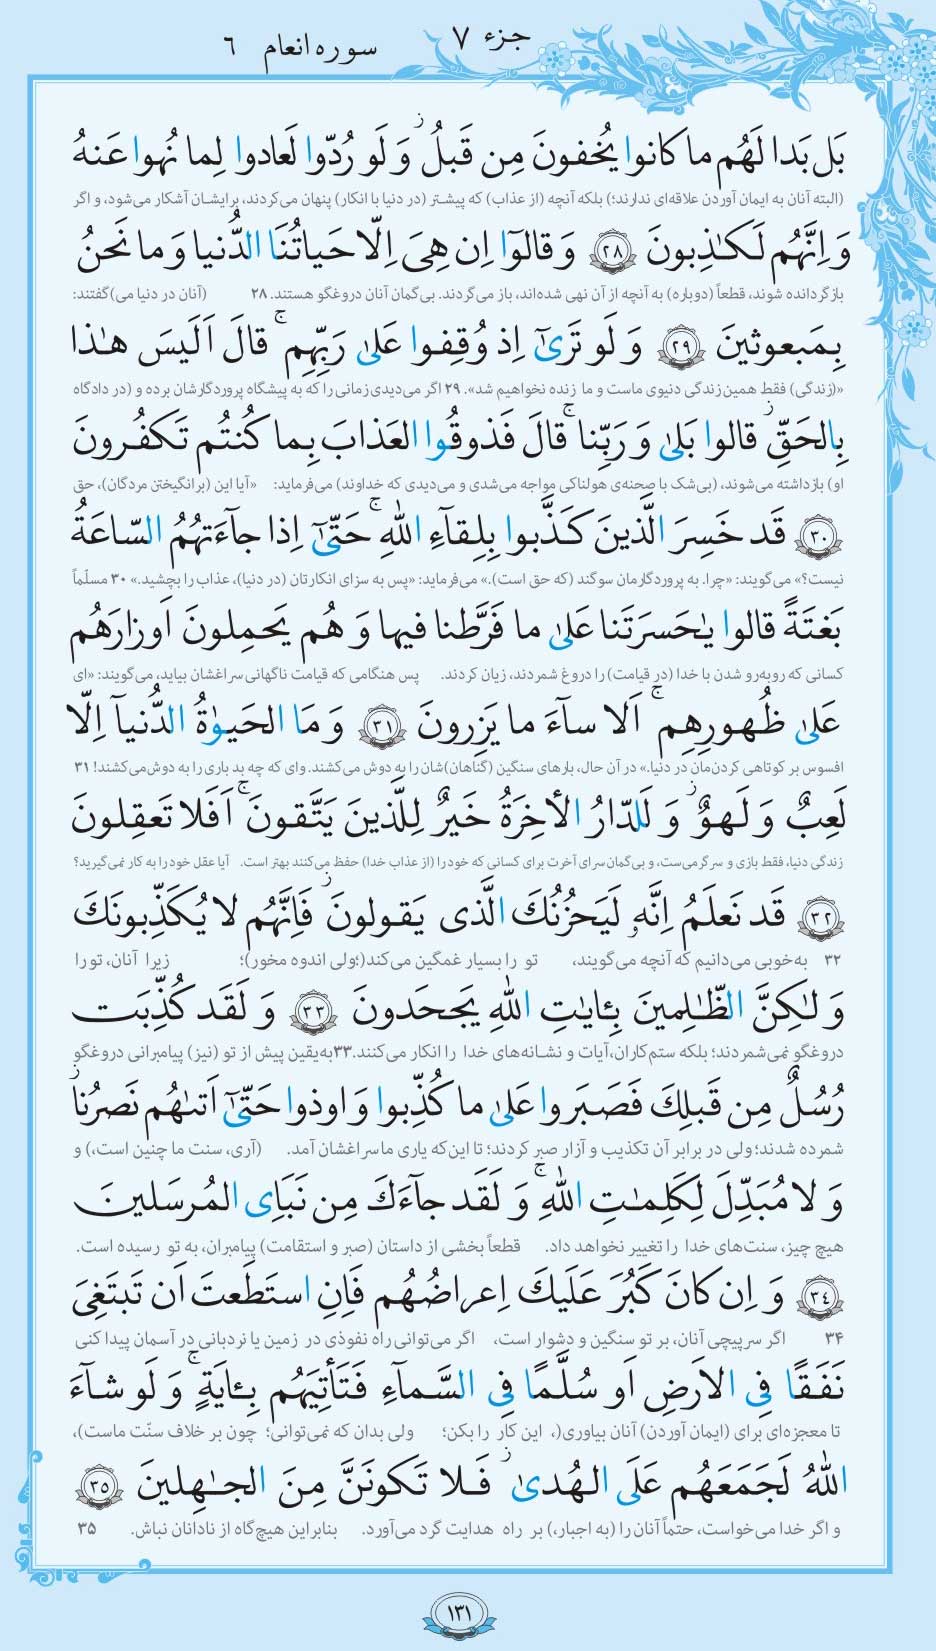 جزء ٧ سوره انعام ٦
بَل بَدا لَهُم ما كانوا يُخفونَ مِن قَبلُ ۖ وَ لَو رُدّوا لَعادوا لِما نُهوا عَنهُ
(البته آنان به ایمان آوردن علاقه‌ای ندارند؛) بلکه آنچه (از عذاب) که پیشتر (در دنیا با انکار) پنهان می‌کردند، برایشان آشکار می‌شود، و اگر
وَ اِنَّهُم لَكـٰذِبونَ ﴿٢٨﴾ وَ قالوٓا اِن هِىَ اِلّا حَياتُنَا الدُّنيا وَ ما نَحنُ
بازگردانده شوند، قطعاً (دوباره) به آنچه از آن نهی شده‌اند، باز می‌گردند. بی‌گمان آنان دروغگو هستند. ۲۸ (آنان در دنیا می)گفتند:
بِمَبعوثينَ ﴿٢٩﴾ وَ لَو تَرىٰٓ اِذ وُقِفوا عَلىٰ رَبِّهِم ۚ قالَ اَلَيسَ هـٰذا
«(زندگی) فقط همین زندگی دنیوی ماست و ما زنده نخواهیم شد». ۲۹ اگر می‌دیدی زمانی را که به پیشگاه پروردگارشان برده و (در دادگاه
بِالحَقِّ ۖ قالوا بَلىٰ وَ رَبِّنا ۚ قالَ فَذوقُوا العَذابَ بِما كُنتُم تَكفُرونَ
او) بازداشته می‌شوند، (بی‌شک با صحنه‌ی هولناکی مواجه می‌شدی و می‌دیدی که خداوند) می‌فرماید: «آیا این (برانگیختن مردگان)، حق
﴿٣٠﴾ قَد خَسِرَ الَّذينَ كَذَّبوا بِلِقآءِ اللهِ ۚ حَتّىٰٓ اِذا جآءَتهُمُ السّاعَةُ
نیست؟» می‌گویند: «چرا. به پروردگارمان سوگند (که حق است).» می‌فرماید: «پس به سزای انکارتان (در دنیا)، عذاب را بچشید.» ۳۰ مسلّماً
بَغتَةً قالوا يـٰحَسرَتَنا عَلىٰ ما فَرَّطنا فيها وَ هُم يَحمِلونَ اَوزارَهُم
کسانی که روبه‌رو شدن با خدا (در قیامت) را دروغ شمردند، زیان کردند. پس هنگامی که قیامت ناگهانی سراغشان بیاید، می‌گویند: «ای
عَلىٰ ظُهورِهِم ۚ اَلا سآءَ ما يَزِرونَ ﴿٣١﴾ وَ مَا الحَيوٰةُ الدُّنيآ اِلّا
افسوس بر کوتاهی کردن‌مان در دنیا.» در آن حال، بارهای سنگین (گناهان)شان را به دوش می‌کشند. وای که چه بد باری را به دوش می‌کشند! ۳۱
لَعِبٌ وَ لَهوٌ ۖ وَ لَلدّارُ الأخِرَةُ خَيرٌ لِلَّذينَ يَتَّقونَ ۚ اَفَلا تَعقِلونَ
زندگی دنیا، فقط بازی و سرگرمی‌ست، و بی‌گمان سرای آخرت برای کسانی که خود را (از عذاب خدا) حفظ می‌کنند بهتر است. آیا عقل خود را به کار نمی‌گیرید؟
﴿٣٢﴾ قَد نَعلَمُ اِنَّهٗ لَيَحزُنُكَ الَّذى يَقولونَ ۖ فَاِنَّهُم لا يُكَذِّبونَكَ
۳۲ به‌خوبی می‌دانیم که آنچه می‌گویند، تو را بسیار غمگین می‌کند(؛ولی اندوه مخور)؛ زیرا آنان، تو را
وَ لـٰكِنَّ الظّـٰلِمينَ بِـٔايـٰتِ اللهِ يَجحَدونَ ﴿٣٣﴾ وَ لَقَد كُذِّبَت
دروغگو نمی‌شمردند؛ بلکه ستم‌کاران،آیات و نشانه‌های خدا را انکار می‌کنند.۳۳به‌یقین پیش از تو (نیز) پیامبرانی دروغگو
رُسُلٌ مِن قَبلِكَ فَصَبَروا عَلىٰ ما كُذِّبوا وَ اوذوا حَتّىٰٓ اَتىٰهُم نَصرُنا ۖ
شمرده شدند؛ولی در برابر آن تکذیب و آزار صبر کردند؛ تا این‌که یاری ما سراغشان آمد. (آری، سنت ما چنین است،) و
وَ لا مُبَدِّلَ لِكَلِمـٰتِ اللهِ ۚ وَ لَقَد جآءَكَ مِن نَبَاِی المُرسَلينَ
هیچ چیز، سنت‌های خدا را تغییر نخواهد داد. قطعاً بخشی از داستان (صبر و استقامت) پیامبران، به تو رسیده است.
﴿٣٤﴾ وَ اِن كانَ كَبُرَ عَلَيكَ اِعراضُهُم فَاِنِ استَطَعتَ اَن تَبتَغِىَ
۳۴ اگر سرپیچی آنان، بر تو سنگین و دشوار است، اگر می‌توانی راه نفوذی در زمین یا نردبانی در آسمان پیدا کنی
نَفَقًا فِى الاَرضِ اَو سُلَّمًا فِى السَّمآءِ فَتَأتِيَهُم بِـٔايَةٍ ۚ وَ لَو شآءَ
تا معجزه‌ای برای (ایمان آوردن) آنان بیاوری(، این کار را بکن؛ ولی بدان که نمی‌توانی؛ چون بر خلاف سنّت ماست)،
اللهُ لَجَمَعَهُم عَلَى الهُدىٰ ۖ فَلا تَكونَنَّ مِنَ الجـٰهِلينَ ﴿٣٥﴾
و اگر خدا می‌خواست، حتماً آنان را (به اجبار،) بر راه هدایت گرد می‌آورد. بنابراین هیچ‌گاه از نادانان نباش. ۳۵
١٣١